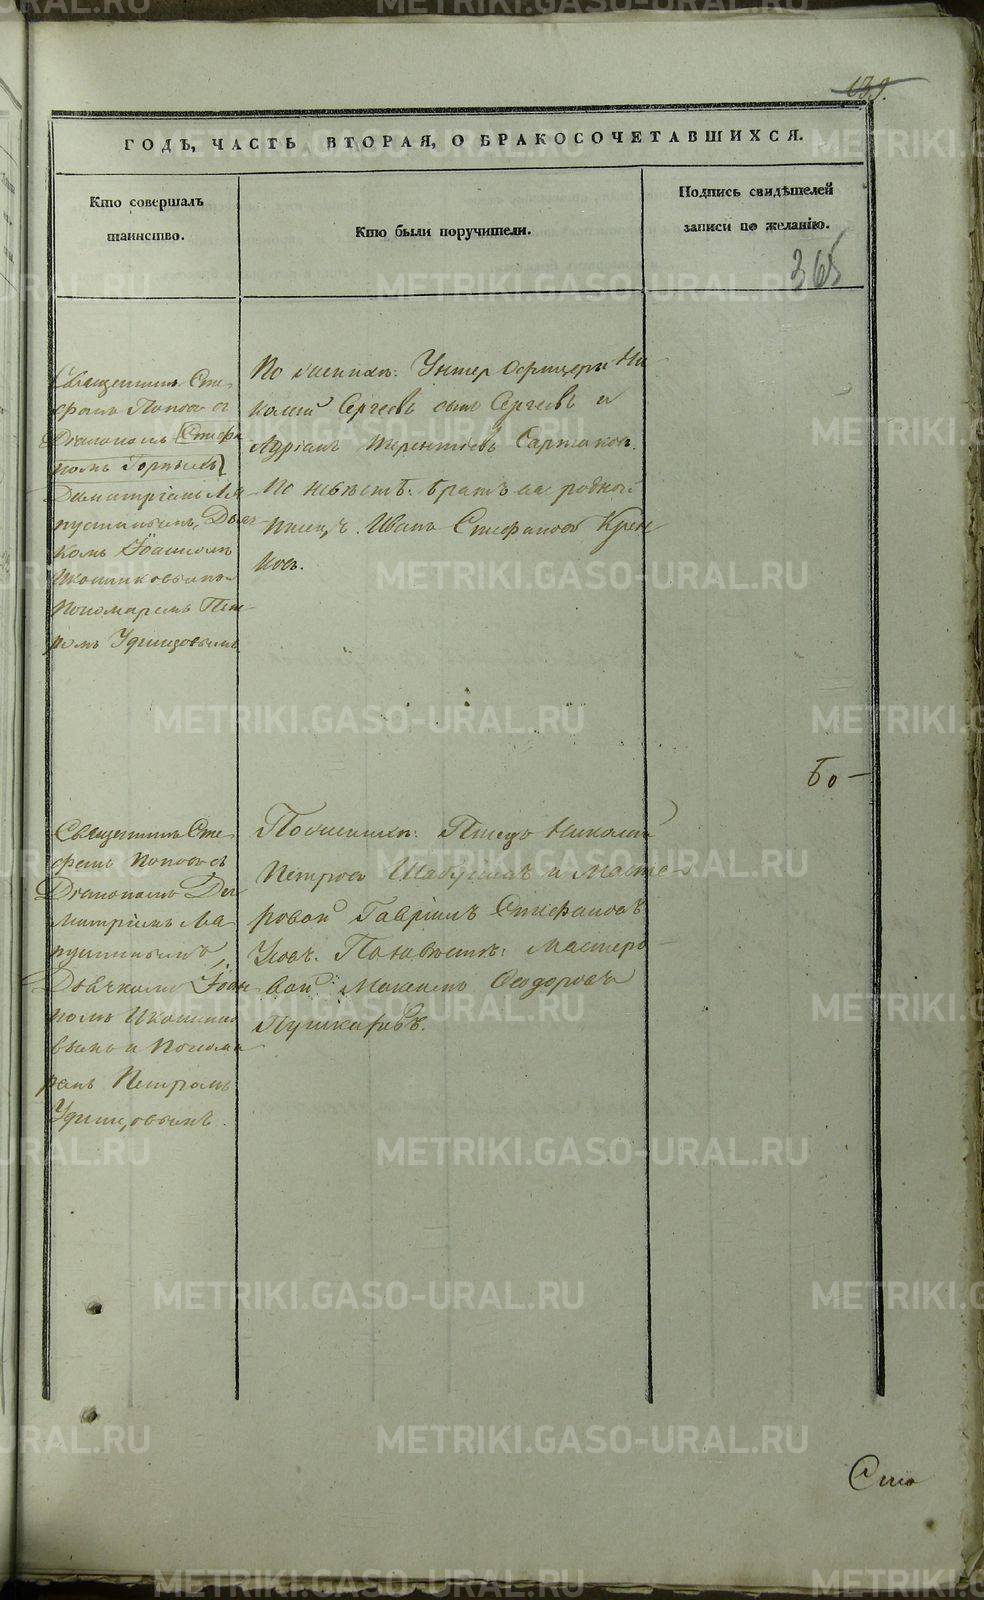 139.
ГОДЪ, ЧАСТЬ ВТОРАЯ, О БРАКОСОЧЕТАВШИХСЯ.
Кто совершалъ
таинство.
Кто были поручители.
Подпись свидѣтелей
записи по желанію.
365
Священникъ Сте-
фанъ Поповъ съ
Діакономъ
Димитріемъ Ла-
пустинымъ, Дьяч-
комъ Іоанномъ
Иконниковымъ
Пономаремъ Пет-
ромъ Удинцовымъ
По женихѣ: Унтер Офицеры Ни
колай Сергеевъ сынъ Сергеевъ и
Терентьевъ
По невѣстѣ: братъ ея родной
писецъ Иванъ Стефановъ
ковъ.
Бо-
Священникъ Сте-
фанъ Поповъ съ
Діакономъ Ди
митріемъ Ла
пустинымъ,
Дьячкомъ Іоан
номъ Иконнико
вымъ и Понома
ремъ Петромъ
Удинцовымъ.
По женихѣ: Писецъ Николай
Петровъ Шабунинъ и Масте-
ровой Гавріилъ Стефановъ
Усовъ. По невѣстѣ: Мастеро
вой Максимъ Ѳеодоровъ
Пушкаревъ.
Сто
METRIKI.GASO-URAL.RU